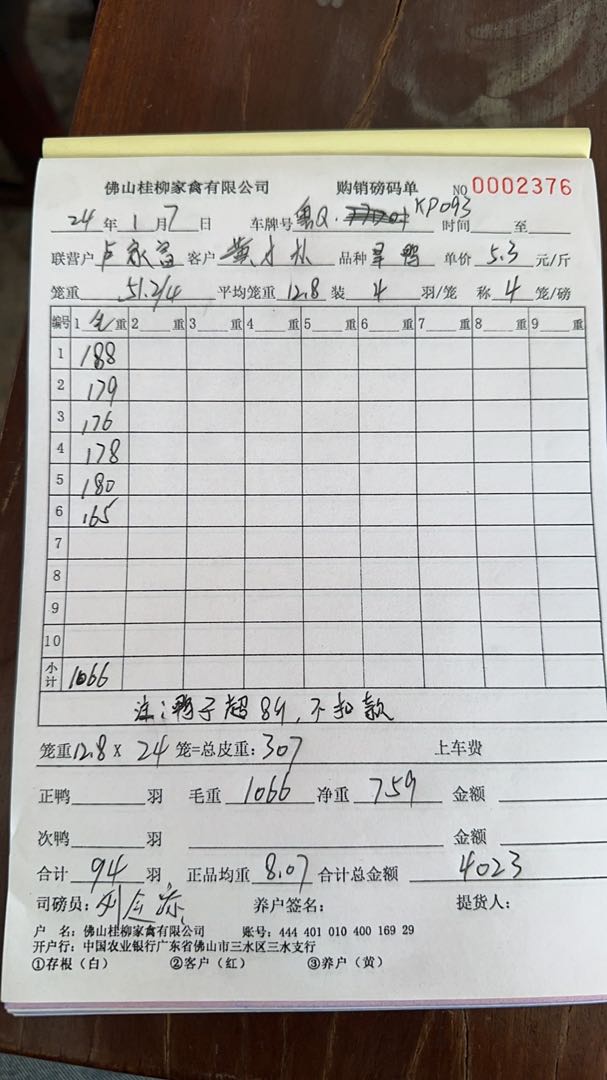 佛山桂柳家禽有限公司 购销磅码单 NO 0002376
24 年 1 月 7 日 车牌号 粤Q· KP093 时间 至
联营户 卢 客户 黄才 品种 旱鸭 单价 5.3 元/斤
笼重 51.2/4 平均笼重 12.8 装 4 羽/笼 称 4 笼/磅
编号 1 毛 重 2 重 3 重 4 重 5 重 6 重 7 重 8 重 9 重
1 188
2 179
3 176
4 178
5 180
6 165
7
8
9
10
小计 1066
注:鸭子超8斤,不扣款
笼重 12.8 X 24 笼=总皮重: 307 上车费
正鸭 羽 毛重 1066 净重 759 金额
次鸭 羽 金额
合计 94 羽, 正品均重 8.07 合计总金额 4023
司磅员: 养户签名: 提货人:
户 名: 佛山桂柳家禽有限公司 账号: 444 401 010 400 169 29
开户行: 中国农业银行广东省佛山市三水区三水支行
①存根(白) ②客户(红) ③养户(黄)